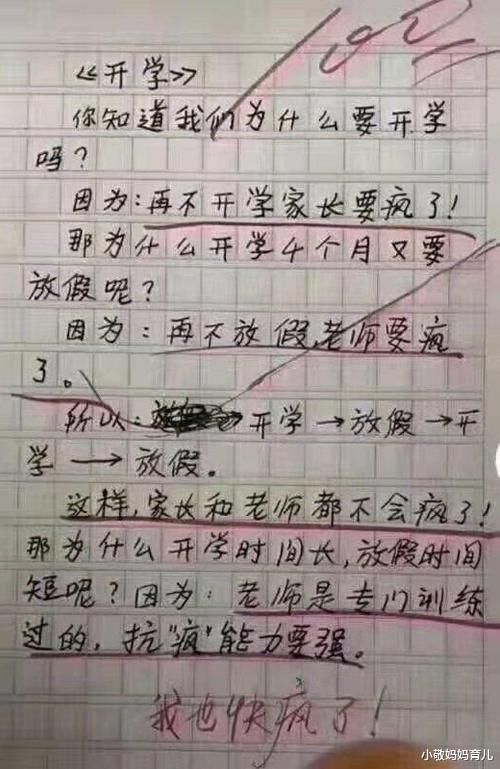 100
《开学》
你知道我们为什么要开学
吗？
因为：再不开学家长要疯了！
那为什么开学4个月又要
放假呢？
因为：再不放假，老师要疯
了。
所以：开学→放假→开
学→放假。
这样，家长和老师都不会疯了！
那为什么开学时间长，放假时间
短呢？因为：老师是专门训练
过的，抗"疯"能力要强。
我也快疯了！
小敬妈妈育儿